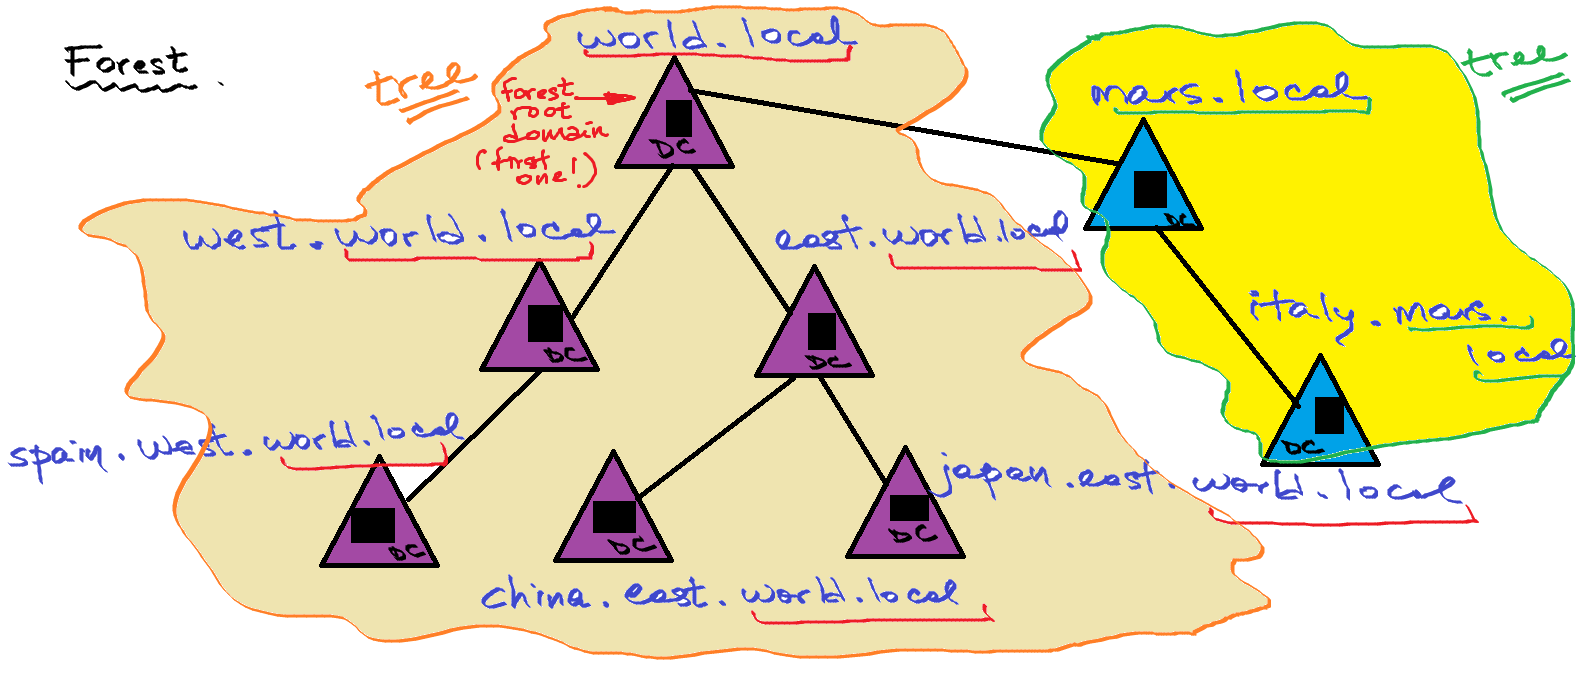 Forest
tree
world.local
forest
root
domain
(first
one!)
DC
tree
mars.local
DC
west.world.local
DC
east.world.local
DC
italy.mars.
local
DC
spain.west.world.local
DC
DC
china.east.world.local
japan.east.world.local
DC